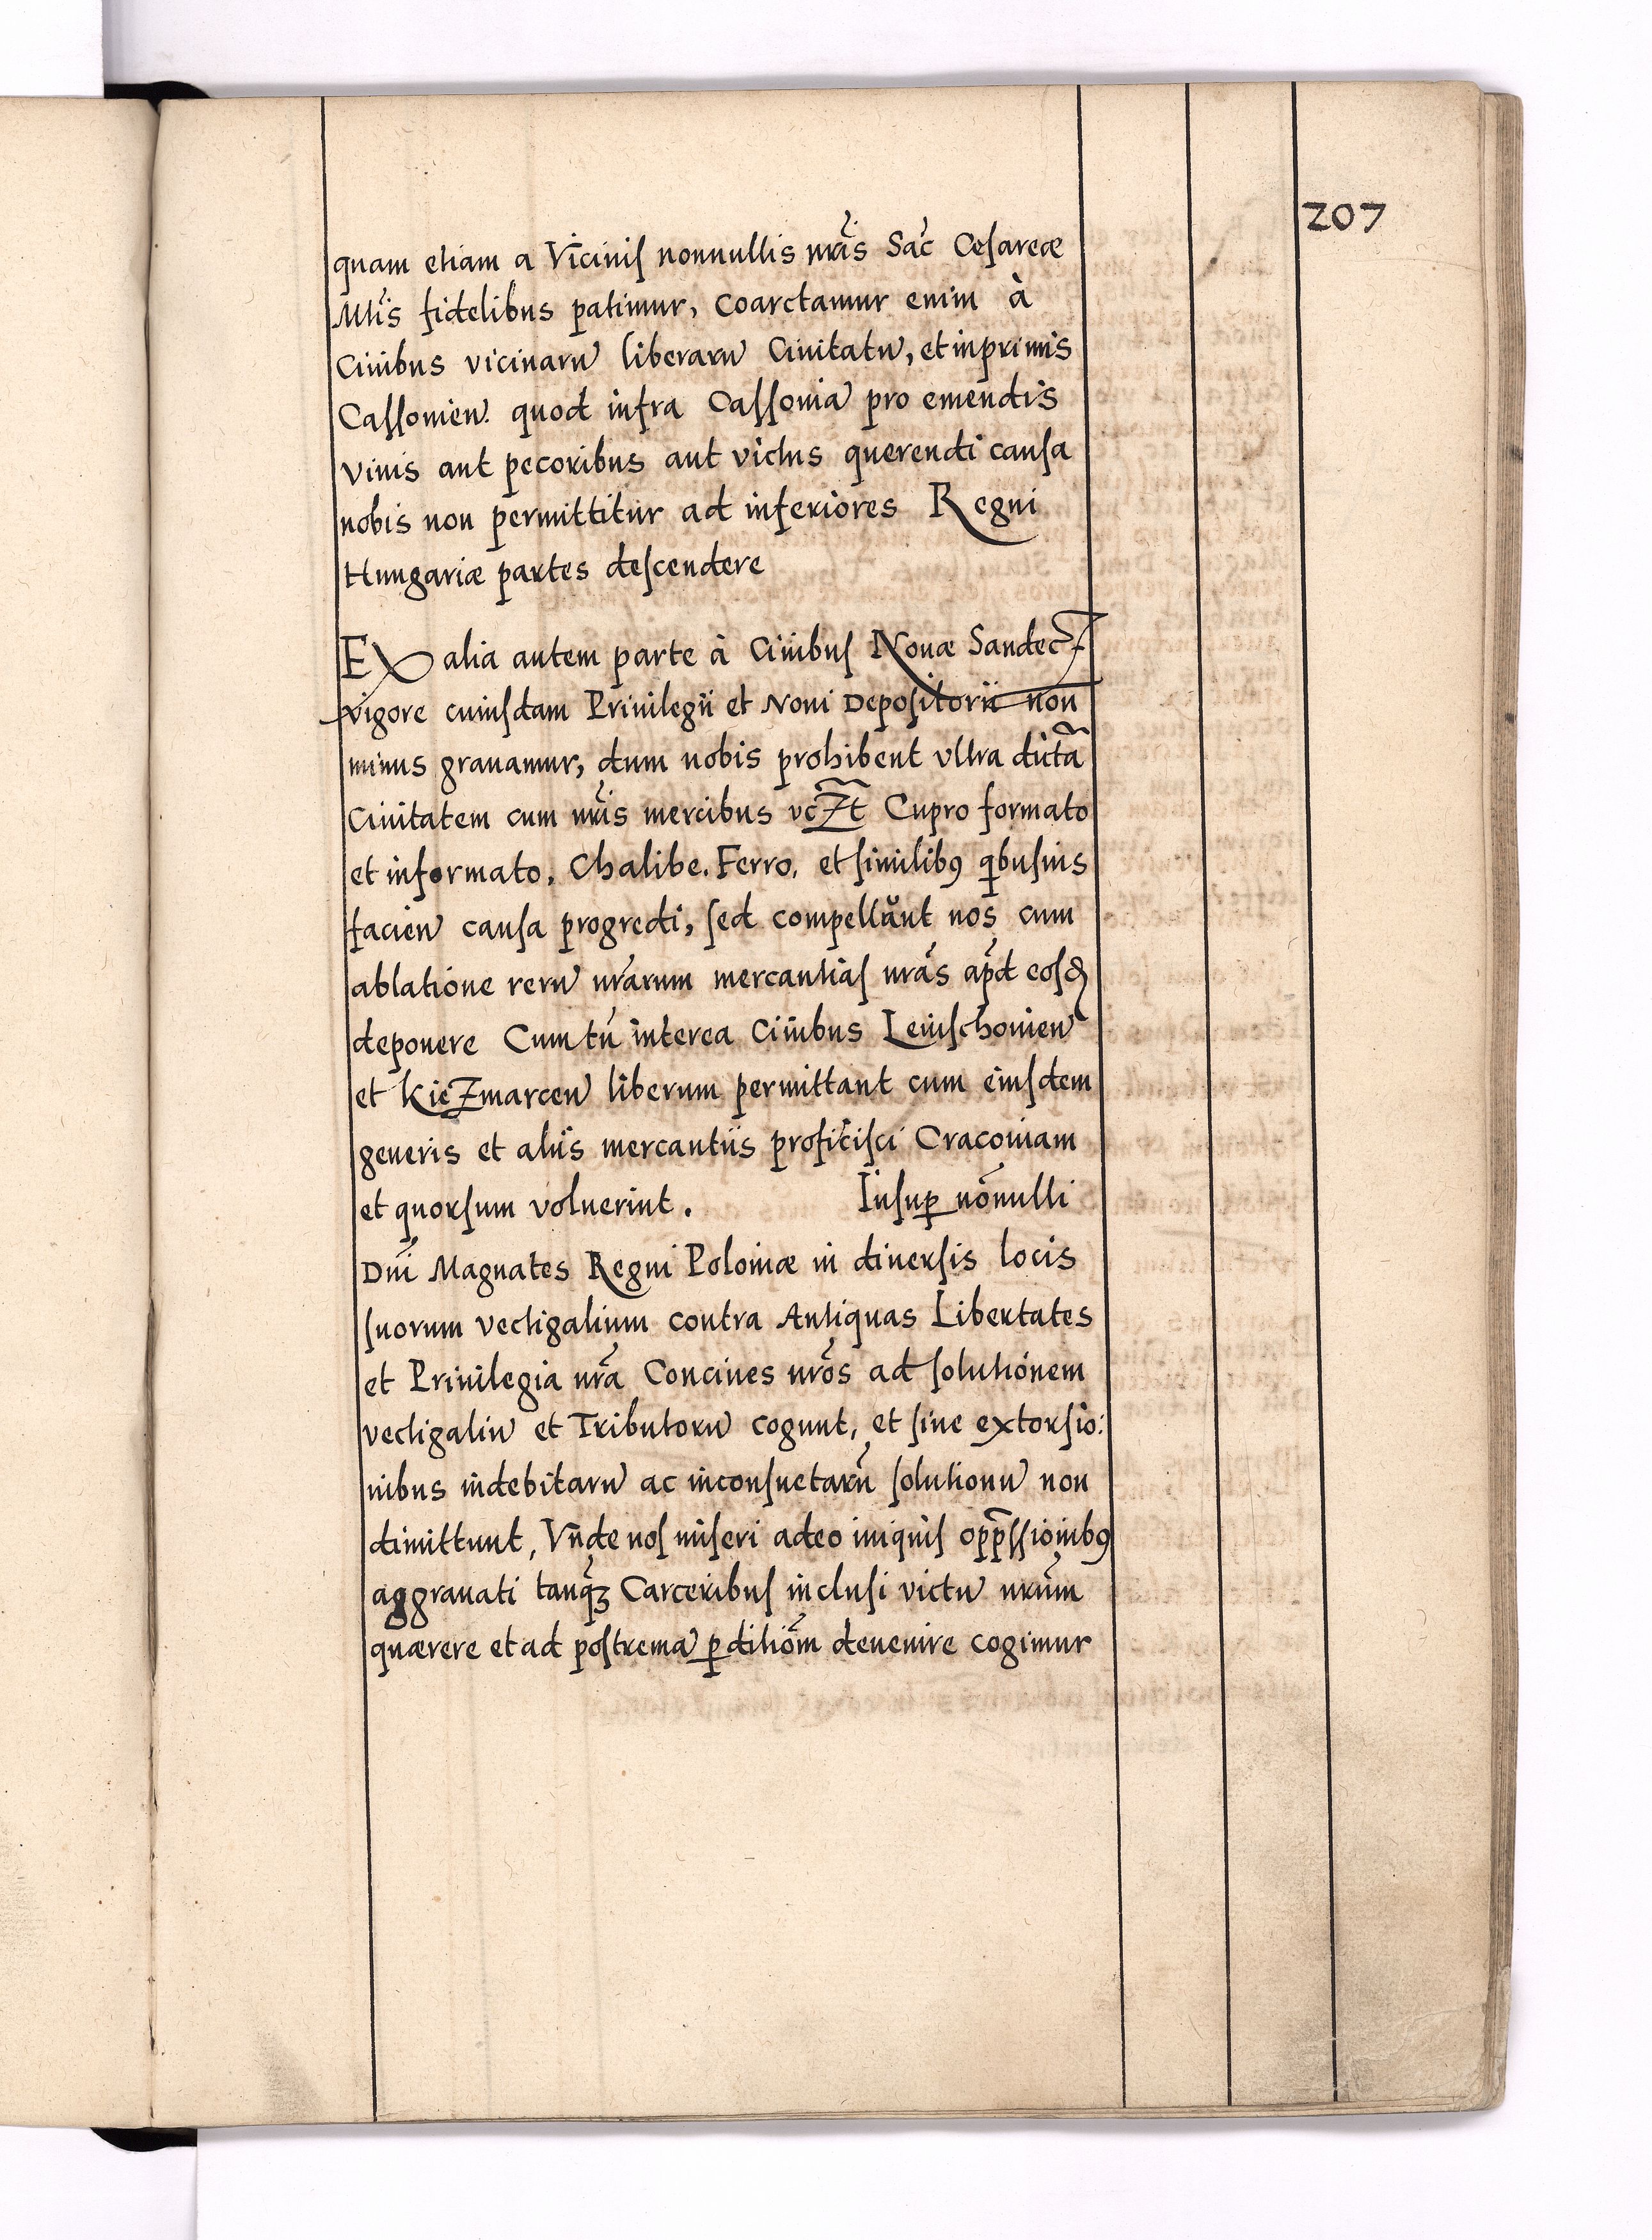 207
quam etiam a Vicinis nonnullis nr̃is Sac̃ Cesareæ
Mtis̃ fidelibus patimur, Coarctamur enim à
Ciuibus vicinarũ liberarũ Ciuitatũ, et inprimis
Cassouien̄. quod infra Cassouiã pro emendis
vinis aut pecoribus aut victus querendi causa
nobis non permittitur ad inferiores Regni
Hungariæ partes descendere
EX alia autem parte à Ciuibus Nouæ Sandec̄
vigore cuiusdam Priuilegii et Noui Depositorii non
minus grauamur, dum nobis prohibent vltra dictã
Ciuitatem cum nr̃is mercibus vcZt̃ Cupro formato
et informato, Chalibe. Ferro, et similibꝰ qbusuis
facien̄ causa progredi, sed compellũnt nos cum
ablatione rerũ nr̃arum mercantias nr̃as apd̃ eosdꝫ
deponere Cum tñ interea Ciuibus Leuschouien̄
et KieZmarcen̄ liberum permittant cum eiusdem
generis et aliis mercantiis proficisci Cracouiam
et quorsum voluerint. Insuꝑ nõnulli
Dñi Magnates Regni Poloniæ in diuersis locis
suorum vectigalium contra Antiquas Libertates
et Priuilegia nr̃a Conciues nr̃os ad solutionem
vectigaliũ et Tributorũ cogunt, et sine extorsio:
nibus indebitarũ ac inconsuetarũ solutionũ non
dimittunt, Vnde nos miseri adeo iniquis opp̃ssionibꝰ
aggrauati tanq̃ꝫ Carceribus inclusi victũ nr̃um
quærere et ad postremã ꝑditiõm deuenire cogimur